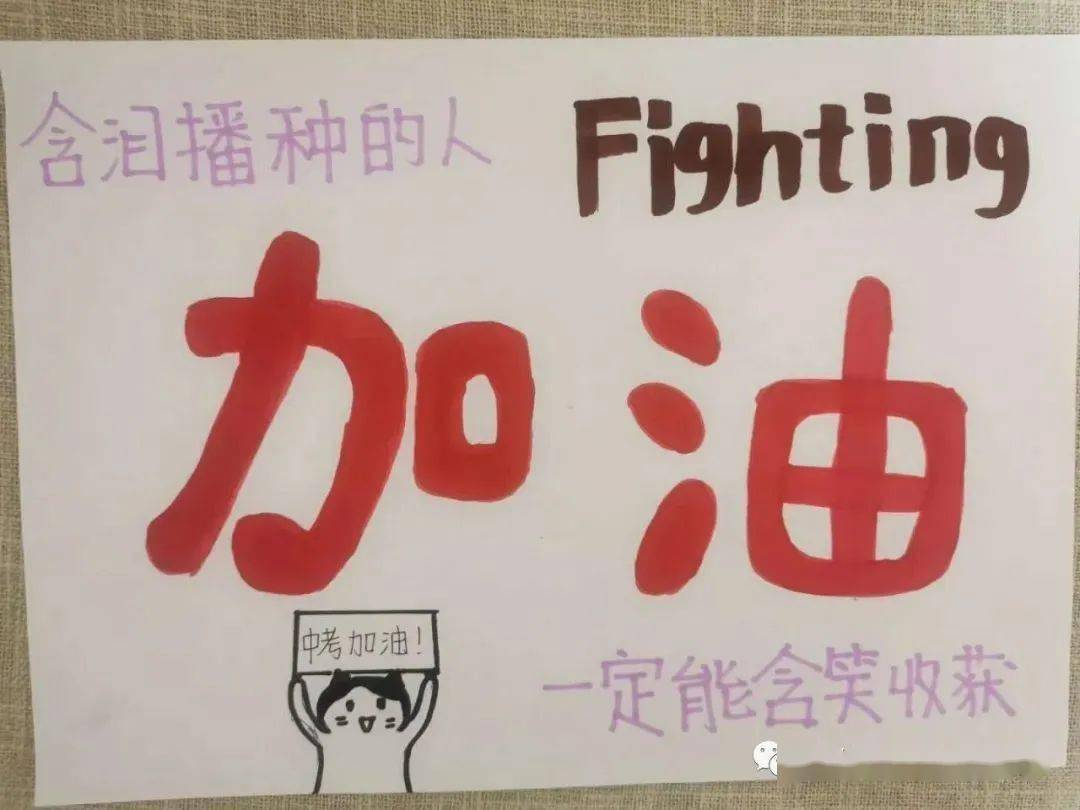 含泪播种的人
Fighting
加油
中考加油!
一定能含笑收获